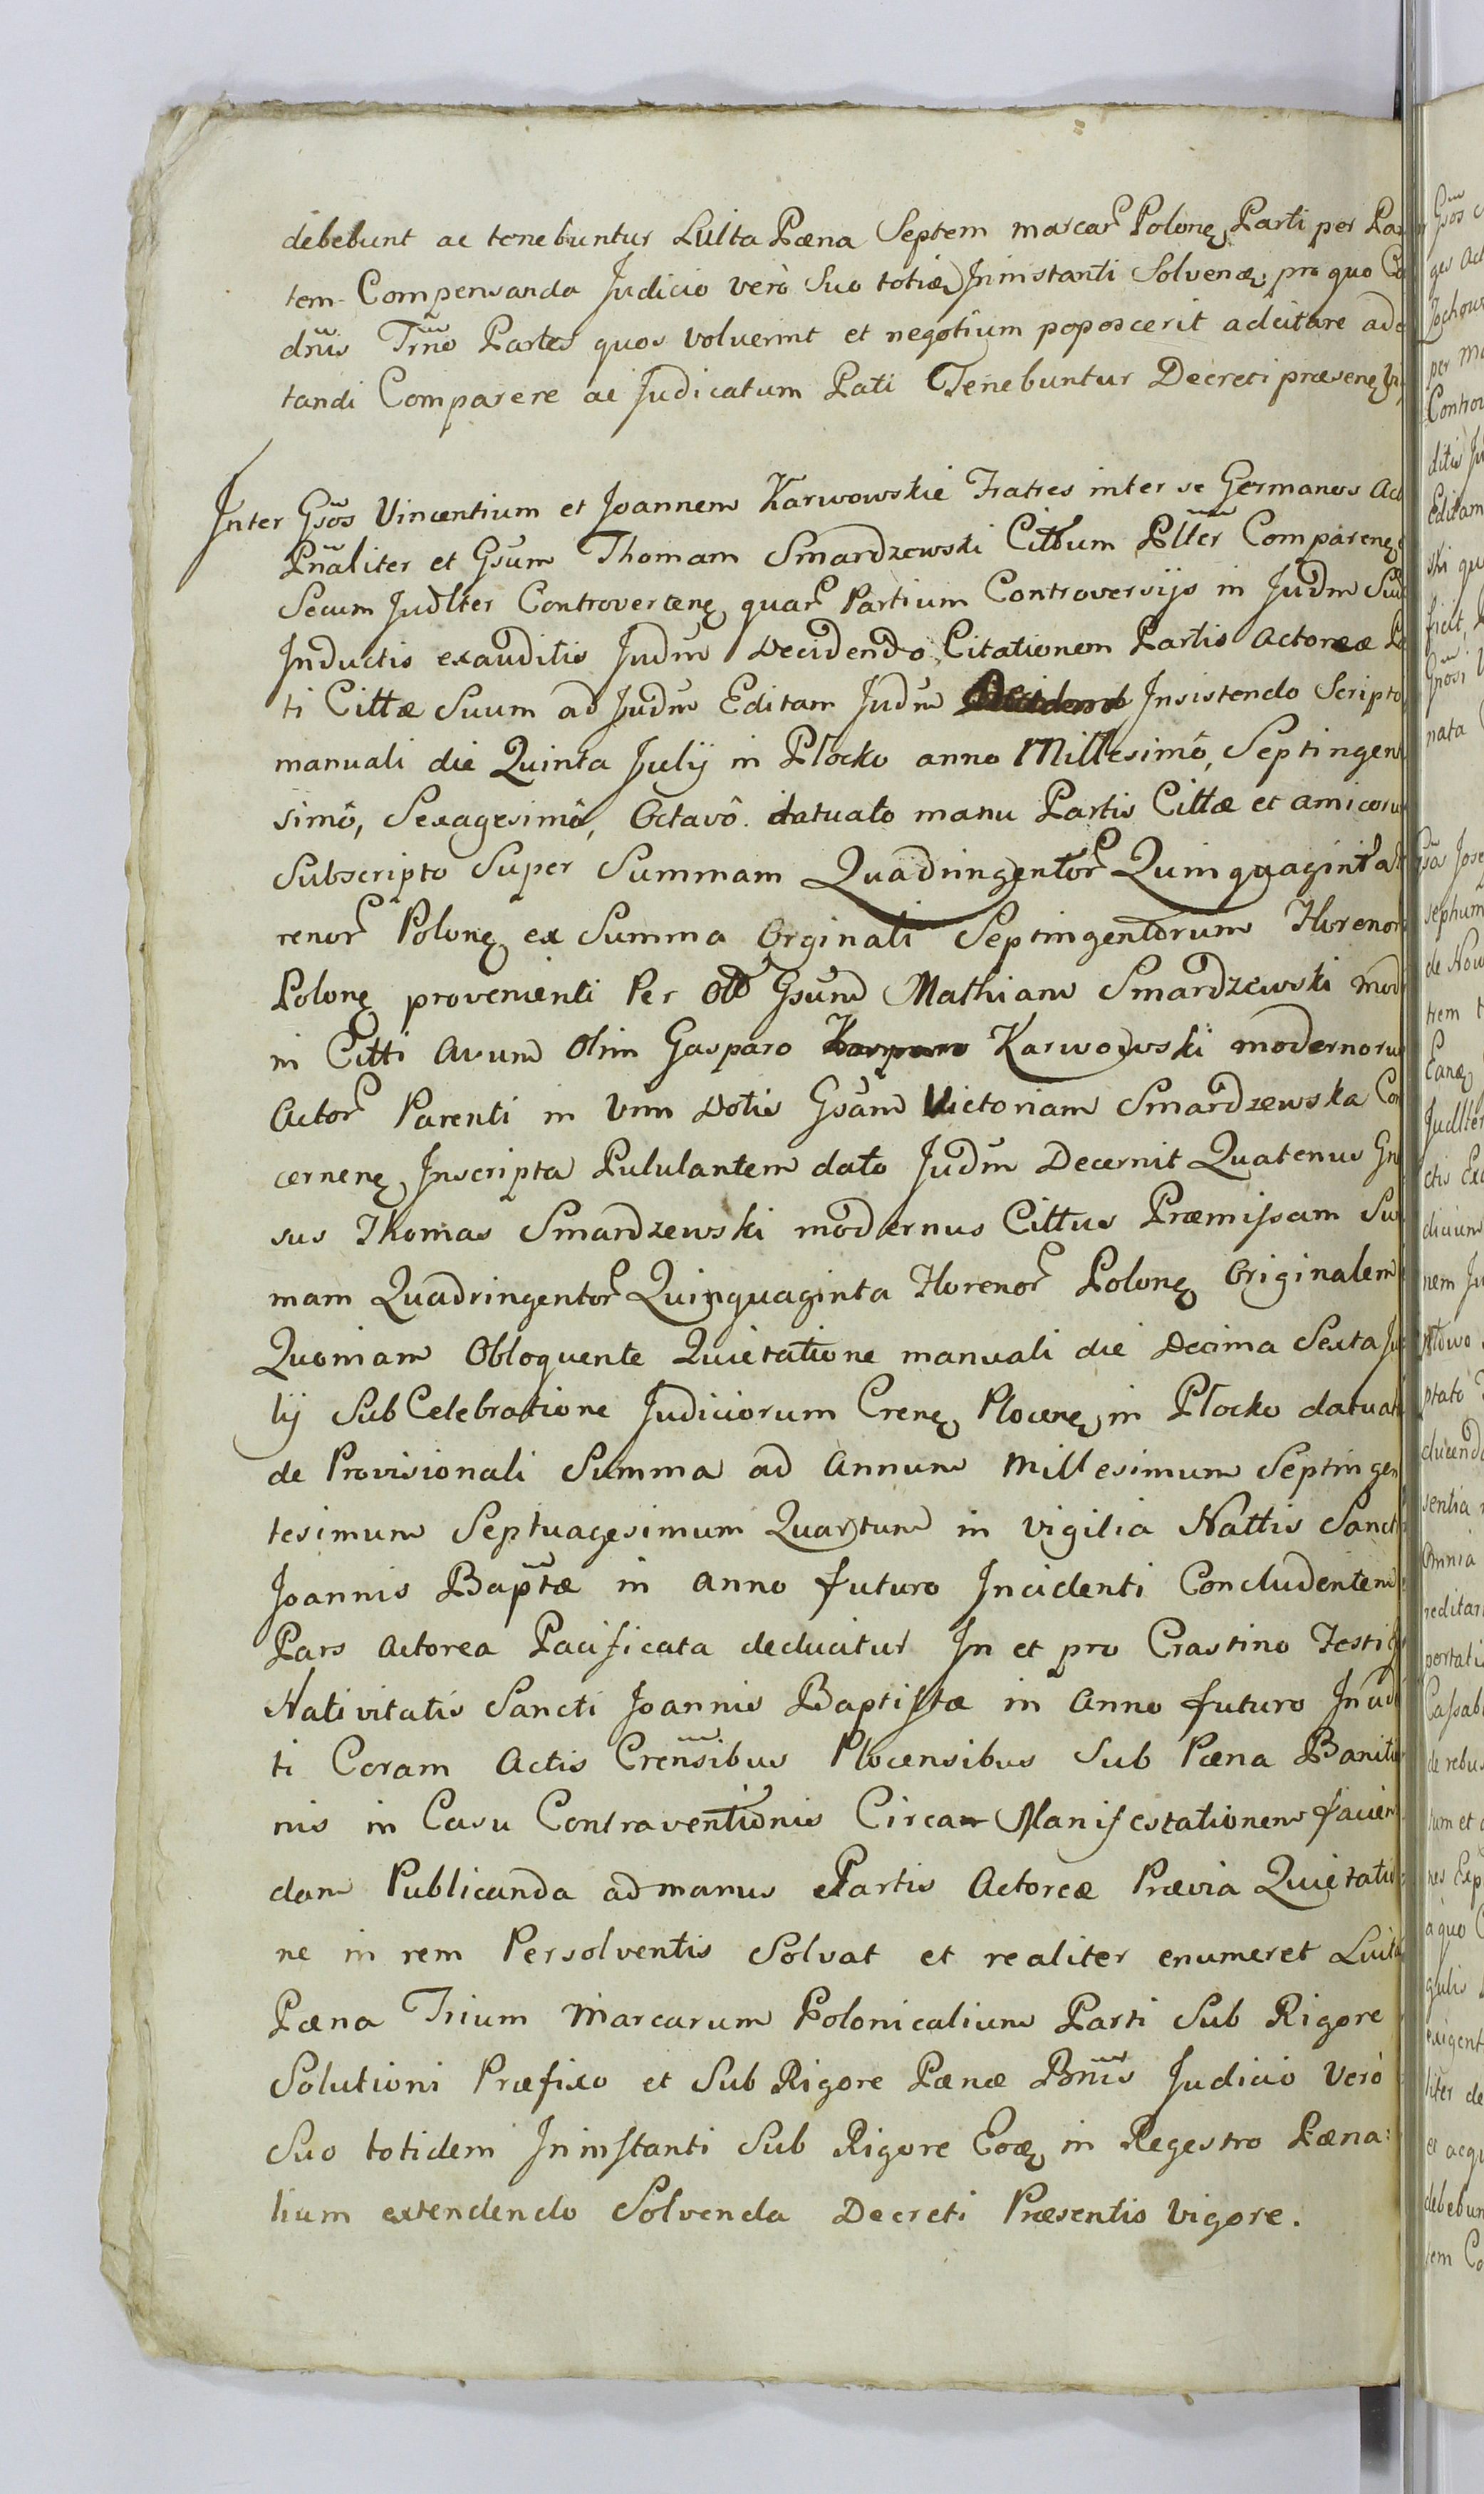 debebunt ac tenebuntur Luita Pæna Septem marcar Polonę Parti per Par
tem Compensanda Judicio verò Suo totidę Ininstanti Solvenæ, pro quo
dnis Trno Partes quos voluerint et negotium poposcerit adcitare
tandi Comparere ac Judicatum Pati Tenebuntur Decreti præsenę
Inter Gsos Vincentium et Joannem Karwowskie Fratres inter se Germanos Act
Pnaliter et Gsum Thomam Smardzewski Cittum Pltter Comparenę
Secum Judlter Controvertenę quar Partium Controversijs in Judm Suu
Inductis exauditis Judm Decidendo Citationem Partis Actoreæ
ti Cittæ Suum ad Judm Editam Judm Insistendo Scripto
manuali die Quinta Julij in Płocko anno Millesimô, Septingen
simô, Sexagesimô, Octavô datuato manu Partis Cittæ et amicoru
Subscripto Super Summam Quadringentor Quinquaginta
renor Polonę ex Summa Orginali Septingentorum Florenor
Polonę provenienti Per Olt Gsum Mathiam Smardzewski mod
ni Citti Avum Olim Gasparo Karwowski modernoru
Actor Parenti in Vim Dotis Gsam Victoriam Smardzewska Con
cernenę Inscripta Pululantem dato Judm Decernit Quatenus Gn
sus Thomas Smardzewski modernus Cittus Præmissam Su
mam Quadringentor Quinquaginta Florenor Polonę Originalem
Quoniam Obloquente Quietatione manuali die Decima Sexta Ju
lij Sub Celebratione Judiciorum Crenę Plocenę in Płocko datuat
de Provisionali Summa ad Annum Millesimum Septingen
tesimum Septuagesimum Quartum in vigilia Nattis Sancti
Joannis Baptæ in anno futuro Incidenti Concludentem
Pars Actorea Pacificata deducitur In et pro Crastino Festi
Nativitatis Sancti Joannis Baptistæ in Anno futuro Incid
ti Coram Actis Crensibus Plocensibus Sub Pæna Banitio
nis in Casu Contraventionis Circa Manifestationem facien
dam Publicanda ad manus Partis Actoreæ Prævia Quietatio
ne in rem Persolventis Solvat et realiter enumeret Luita
Pæna Trium Marcarum Polonicalium Parti Sub Rigore
Solutioni Præfixo et Sub Rigore Pænæ Bnis Judicio Verò
Suo totidem Ininstanti Sub Rigore Eoæ in Regestro Pæna:
lium extendendo Solvenda Decreti Præsentis Vigore.